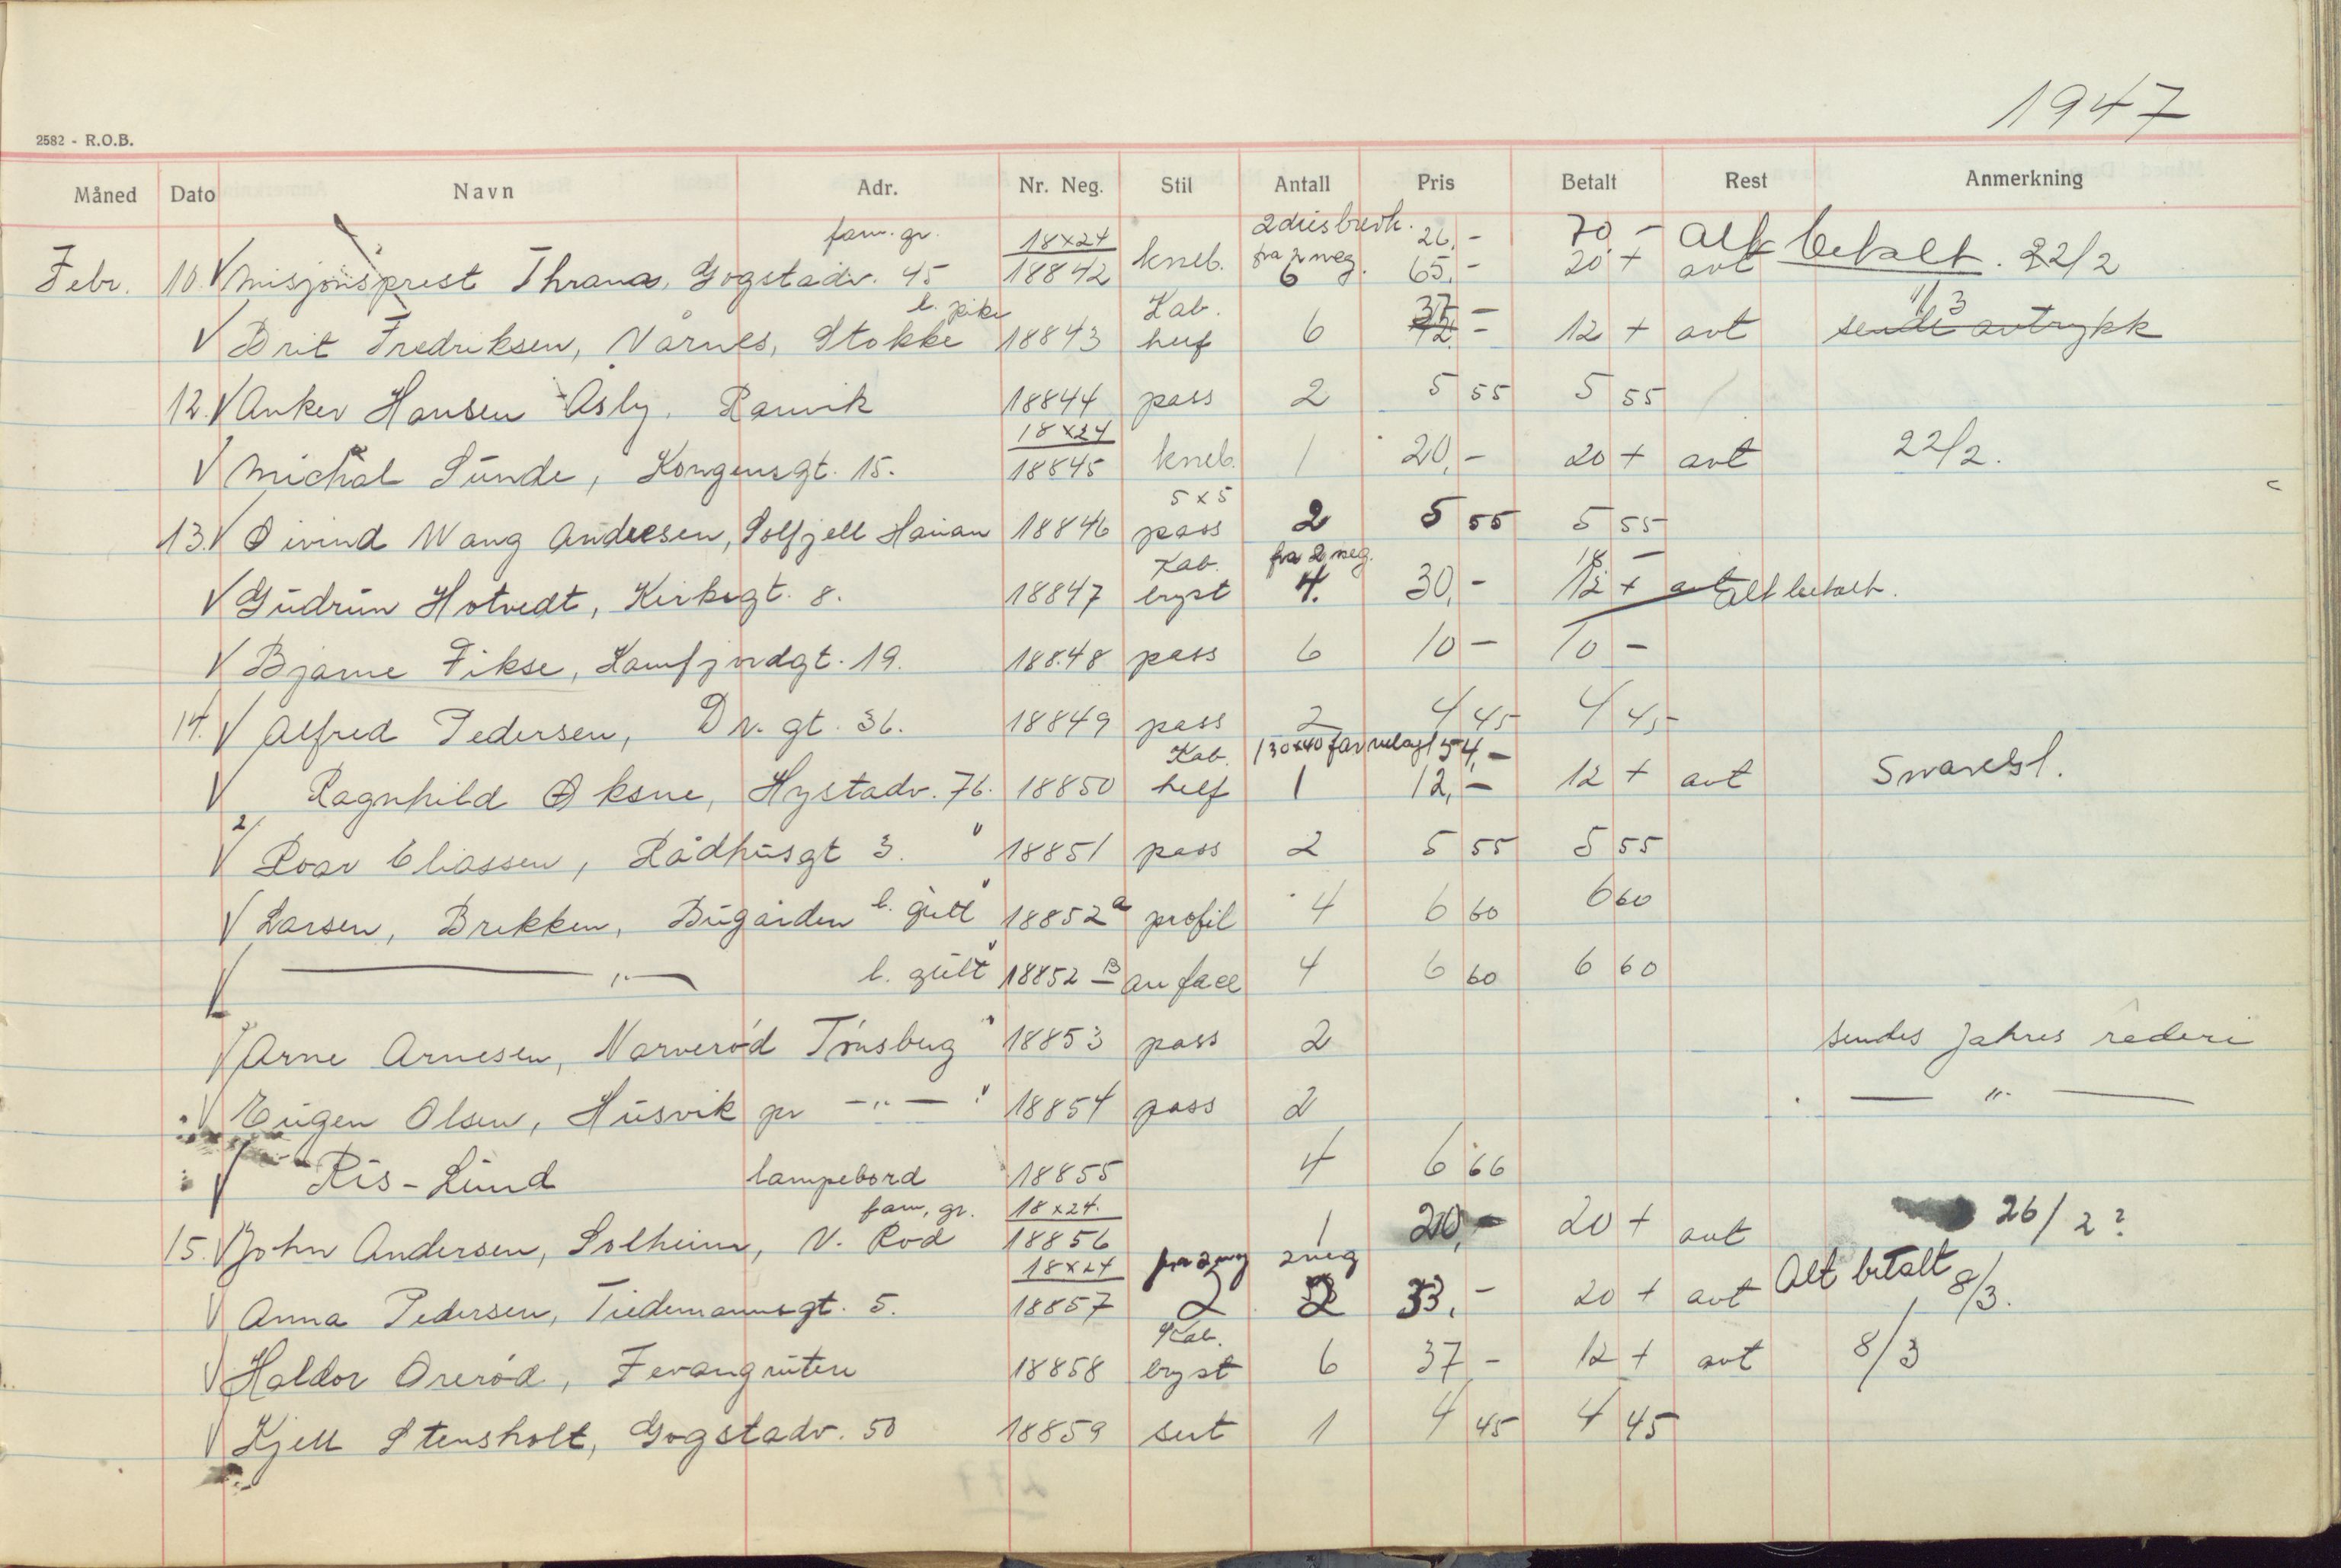 1947
2582 - R.O.B.
Måned Dato Navn Adr. Nr. Neg. Stil Antall Pris Betalt Rest Anmerkning
fam. gr. 18x24 26,- 70 - Alt betalt. 22/2
Febr. 10. V Misjonsprest Thrana, Gogstadv. 45 18842 kneb. fra 2 neg. 6 65,- 20 + avt
l. pike Kab. 37 - 1/3
V Brit Fredriksen, Varnes, Stokke 18843 helf 6 42 - 12 + avt sende avtrykk
12. V Anker Hansen Åsly, Ranvik 18844 pass 2 5 55 5 55
18x24
V Michal Sunde, Kongensgt. 15. 18845 kneb. 1 20,- 20 + avt 22/2.
5x5
13. V Øivind Wang Andresen, Solfjell 18846 pass 2 5 55 5 55
Kab. fra 2 neg. 18 -
V Gudrun Hotvedt, Kirkegt. 8. 18847 bryst 4. 30,- 12 + avt Alt betalt.
V Bjarne Fikse, Lamfjordgt. 19. 18848 pass 6 10 - 10 -
14. V Alfred Pedersen, Dr. gt. 36. 18849 pass 2 4 45 4 45
Kab. 1 30x40 farvelagt 54,-
V Ragnhild Øksne, Hystadv. 76. 18850 helf 1 12,- 12 + avt Snarest.
2/
V Roar Eliassen, Rådhusgt 3. " 18851 pass 2 5 55 5 55
V Larsen, Brekken, Bugården l. gutt " 18852 a profil 4 6 60 6 60
V — " — l. gutt " 18852 B an face 4 6 60 6 60
V Arne Arnesen, Narverød Tønsberg " 18853 pass 2 sendes Jahres rederi
V Eugen Olsen, Husvik pr — " — " 18854 pass 2 — " —
V Ris-Lund lampebord 18855 4 6 66
fam. gr. 18x24.
15. V John Andersen, Solheim, V. Rød 18856 1 20,- 20 + avt 26/2 ?
18x24 fra 2 neg 2 neg Alt betalt
V Anna Pedersen, Tiedemannsgt. 5. 18857 2 2 33,- 20 + avt 8/3.
Kab.
V Haldor Orerød, Fevangruten 18858 bryst 6 37 - 12 + avt 8/3
V Kjell Stensholt, Gogstadv. 50 18859 sert 1 4 45 4 45